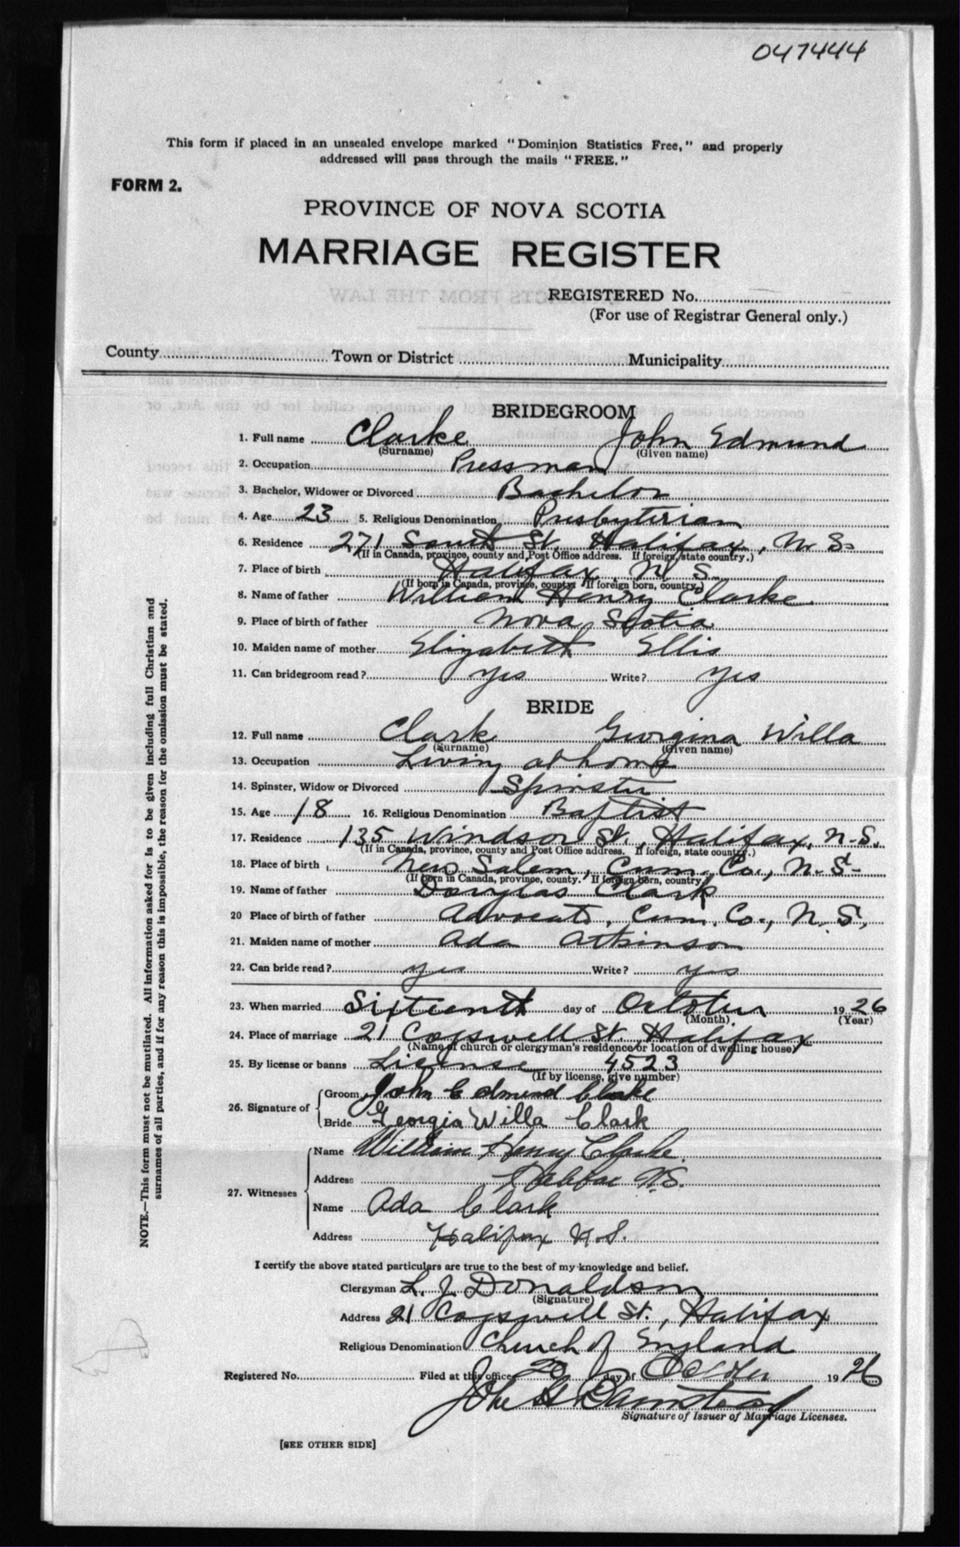 047444
This form if placed in an unsealed envelope marked "Dominion Statistics Free," and properly
addressed will pass through the mails "FREE."
FORM 2.
PROVINCE OF NOVA SCOTIA
MARRIAGE REGISTER
REGISTERED No.
(For use of Registrar General only.)
County Town or District Municipality
BRIDEGROOM
1. Full name Clarke John Edmund
(Surname) (Given name)
2. Occupation Pressman
3. Bachelor, Widower or Divorced Bachelor
4. Age 23 5. Religious Denomination Presbyterian
6. Residence 271 South St. Halifax, N.S.
(If in Canada, province, county and Post Office address. If foreign, state country.)
7. Place of birth Halifax N.S.
(If born in Canada, province, county. If foreign born, country.)
8. Name of father William Henry Clarke
9. Place of birth of father Nova Scotia
10. Maiden name of mother Elizabeth Ellis
11. Can bridegroom read? Yes Write? Yes
BRIDE
12. Full name Clark Georgina Willa
(Surname) (Given name)
13. Occupation Living at home
14. Spinster, Widow or Divorced Spinster
15. Age 18 16. Religious Denomination Baptist
17. Residence 135 Windsor St., Halifax, N.S.
(If in Canada, province, county and Post Office address. If foreign, state country.)
18. Place of birth New Salem, Cum. Co., N.S.
(If born in Canada, province, county. If foreign born, country)
19. Name of father Douglas Clark
20 Place of birth of father Advocate, Cum. Co., N.S.
21. Maiden name of mother Ada Atkinson
22. Can bride read? yes Write? yes
23. When married Sixteenth day of October 1926
(Month) (Year)
24. Place of marriage 21 Cogswell St. Halifax
(Name of church or clergyman's residence or location of dwelling house)
25. By license or banns License 4523
(If by license, give number)
26. Signature of Groom John Edmund Clarke
Bride Georgia Willa Clark
27. Witnesses Name William Henry Clarke
Address Halifax N.S.
Name Ada Clark
Address Halifax N.S.
I certify the above stated particulars are true to the best of my knowledge and belief.
Clergyman L. J. Donaldson
(Signature)
Address 21 Cogswell St., Halifax
Religious Denomination Church of England
Registered No. Filed at this office 20 day of October 1926
John H Barnstead
Signature of Issuer of Marriage Licenses.
[SEE OTHER SIDE]
NOTE.—This form must not be mutilated. All information asked for is to be given including full Christian and
surnames of all parties, and if for any reason this is impossible, the reason for the omission must be stated.